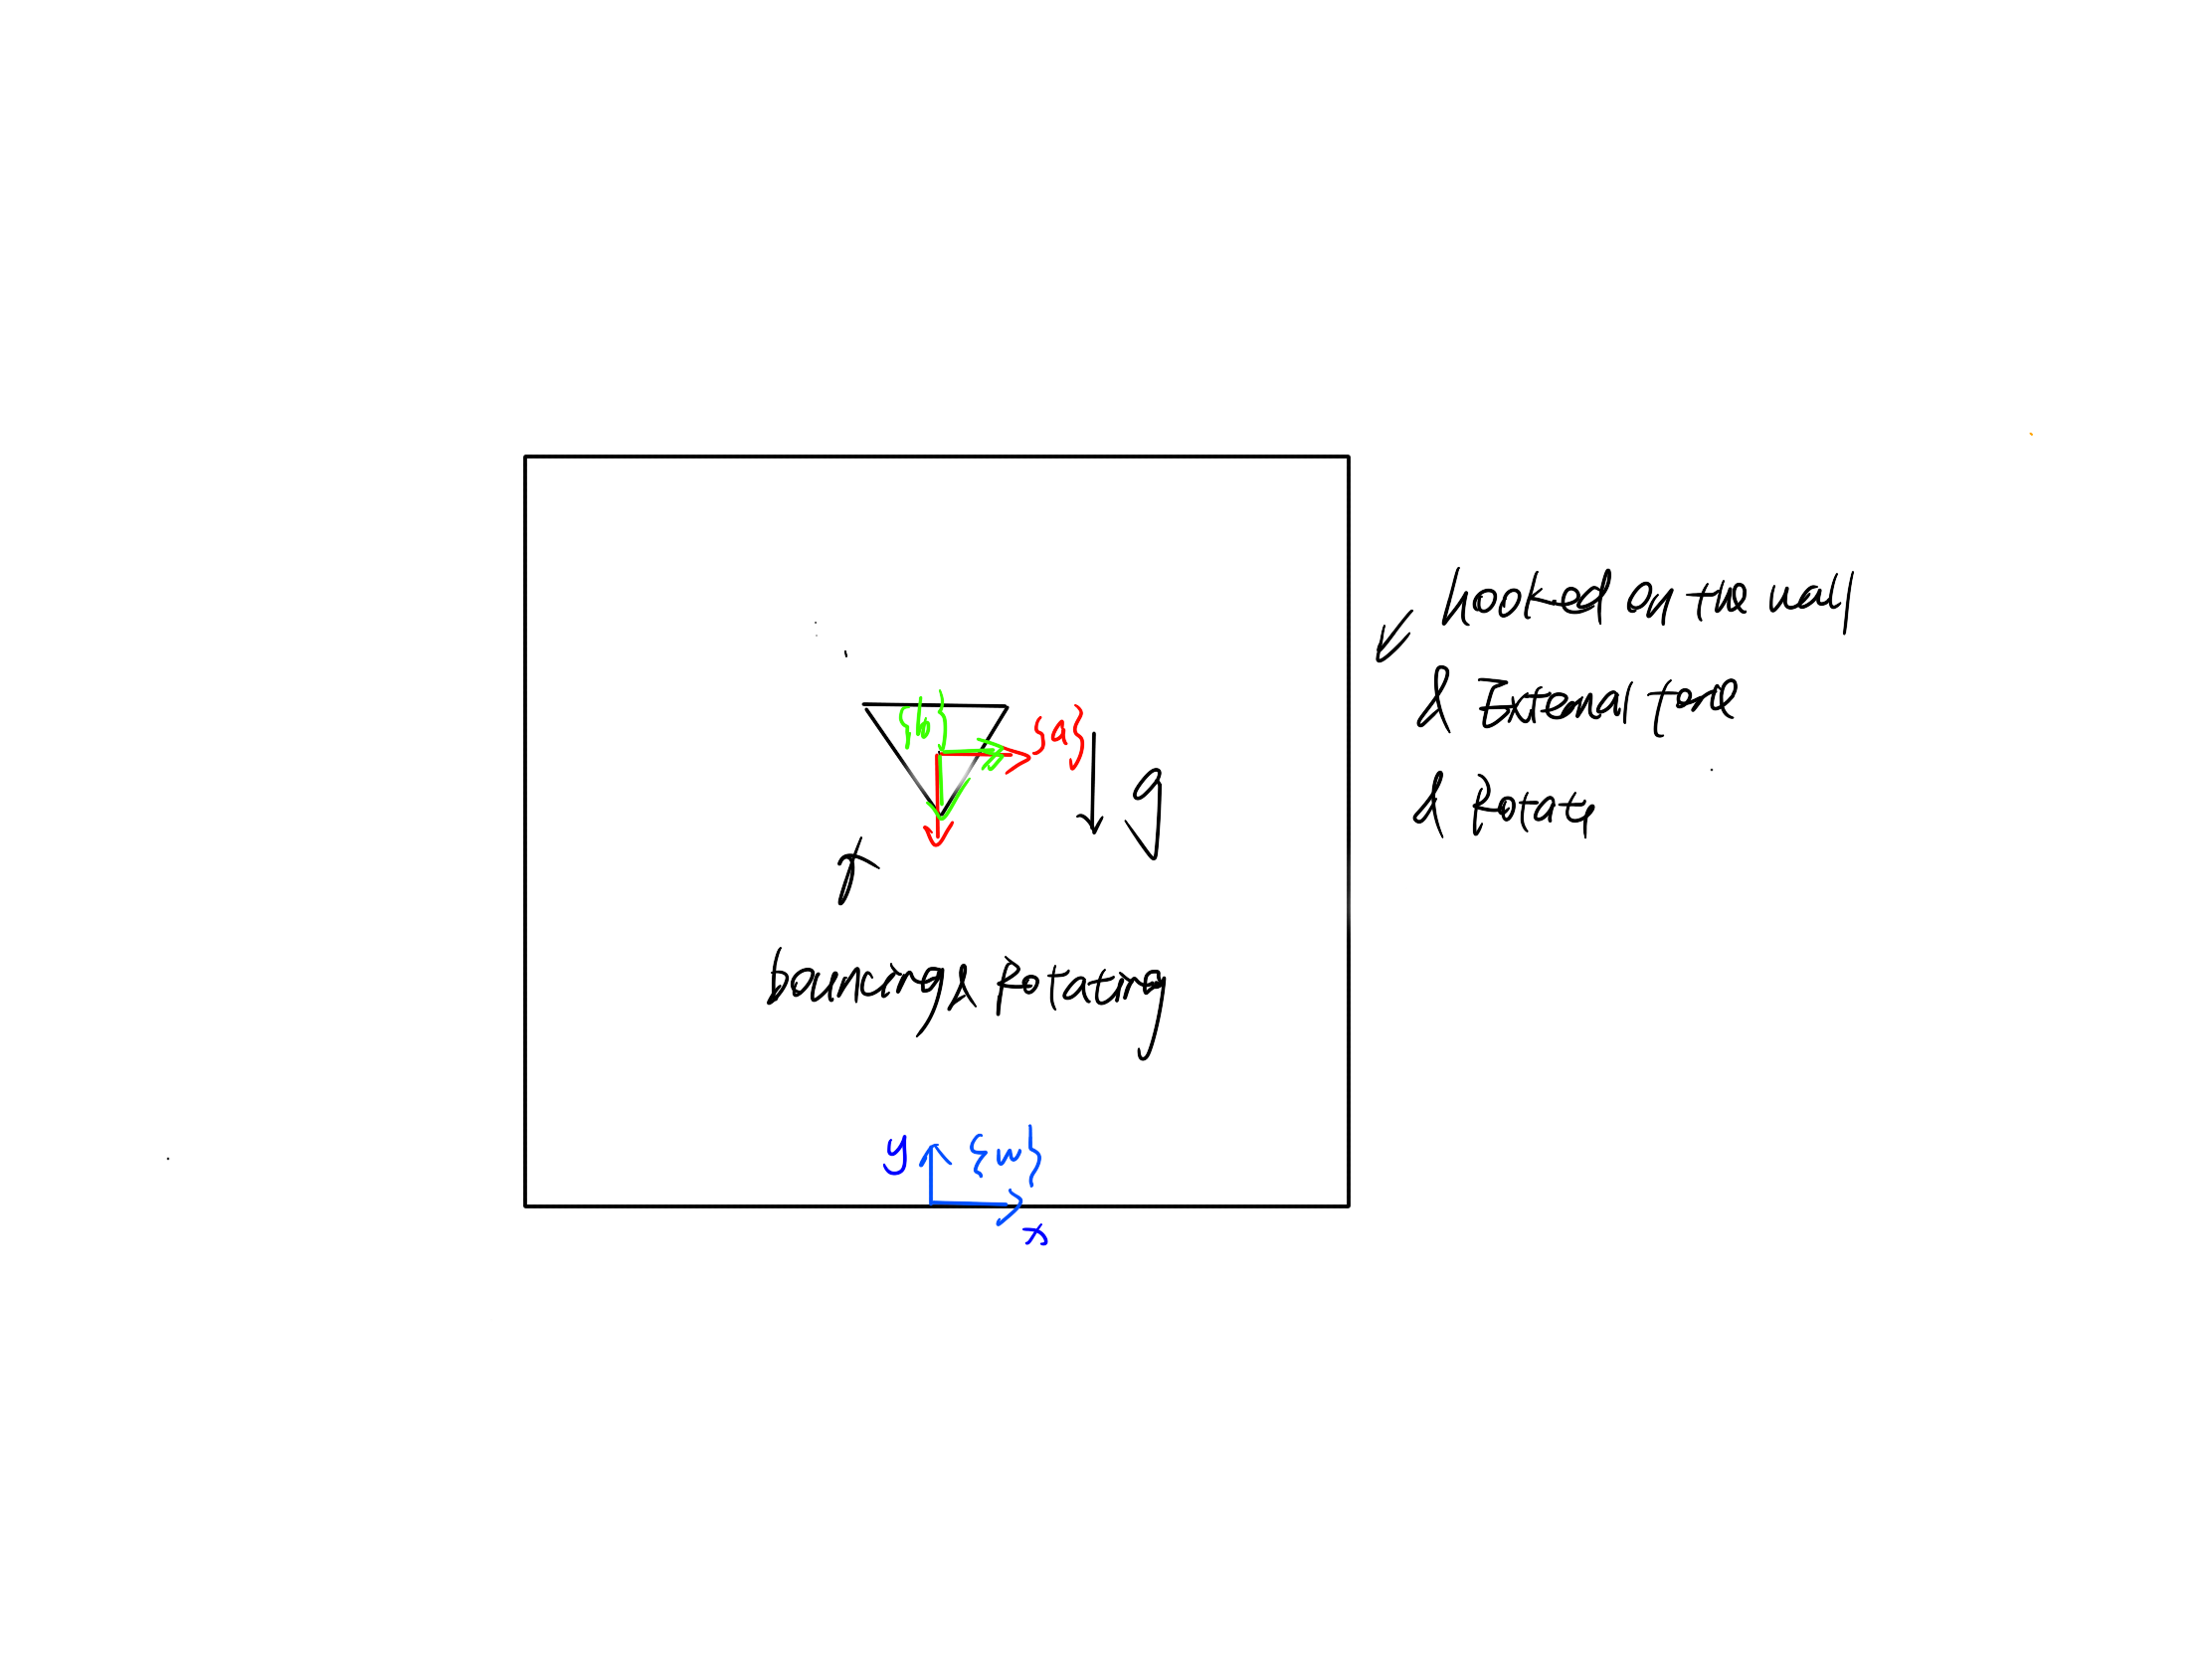 hooked on the wall
& External
{b}
{a}
& Rotate
g
bouncing & Rotating
y {w}
x